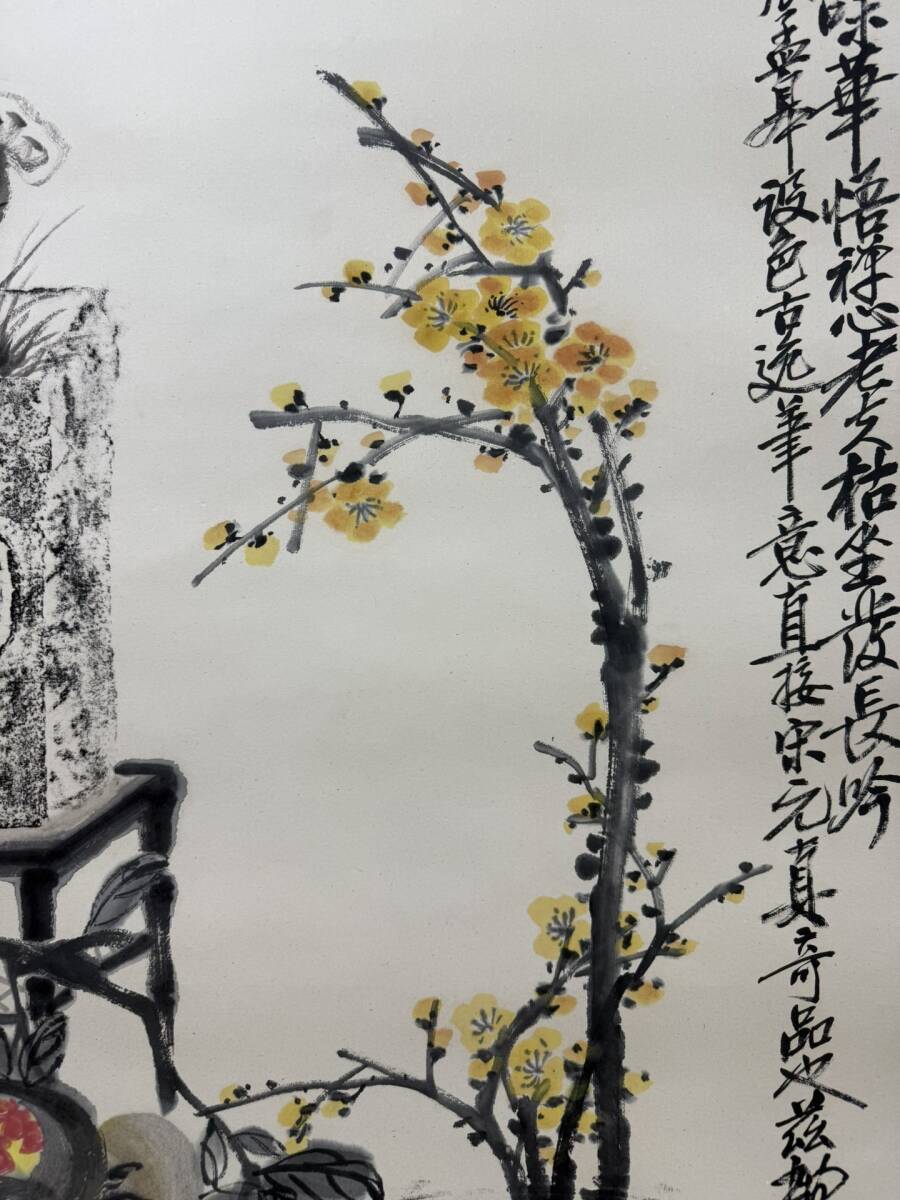 華悟禪心老夫枯坐發長吟
孟皋設色古逸筆意直接宋元真奇品也茲